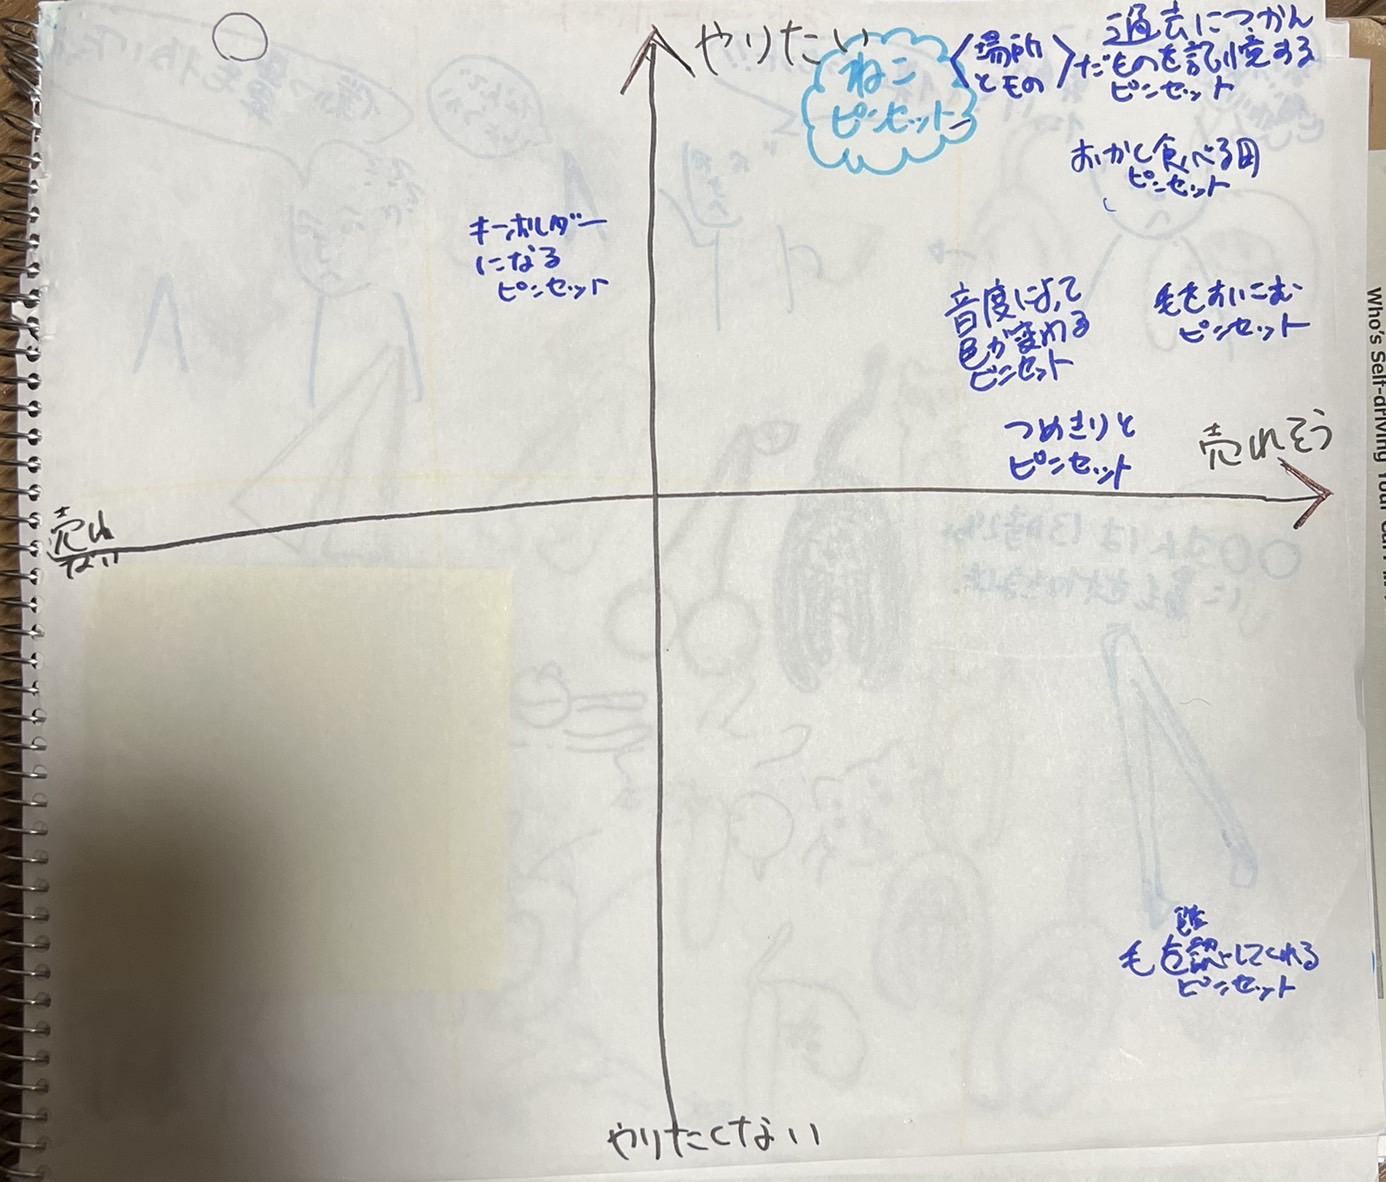 やりたい
ねこ
ピンセット
場所
ともの
過去につかん
だものを記憶する
ピンセット
おかし食べる用
ピンセット
キーホルダー
になる
ピンセット
音度によって
色が変わる
ピンセット
毛をすいこむ
ピンセット
つめきりと
ピンセット
売れそう
売れ
ない
毛を認してくれる
ピンセット
やりたくない
Who's Self-driving Your Car?